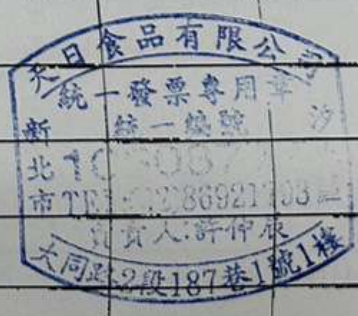 天日食品有限公司
統一發票專用章
新 統一編號 汐
北
市 TEL:(02)86921793
負責人:許仲
大同路2段187巷1號1樓